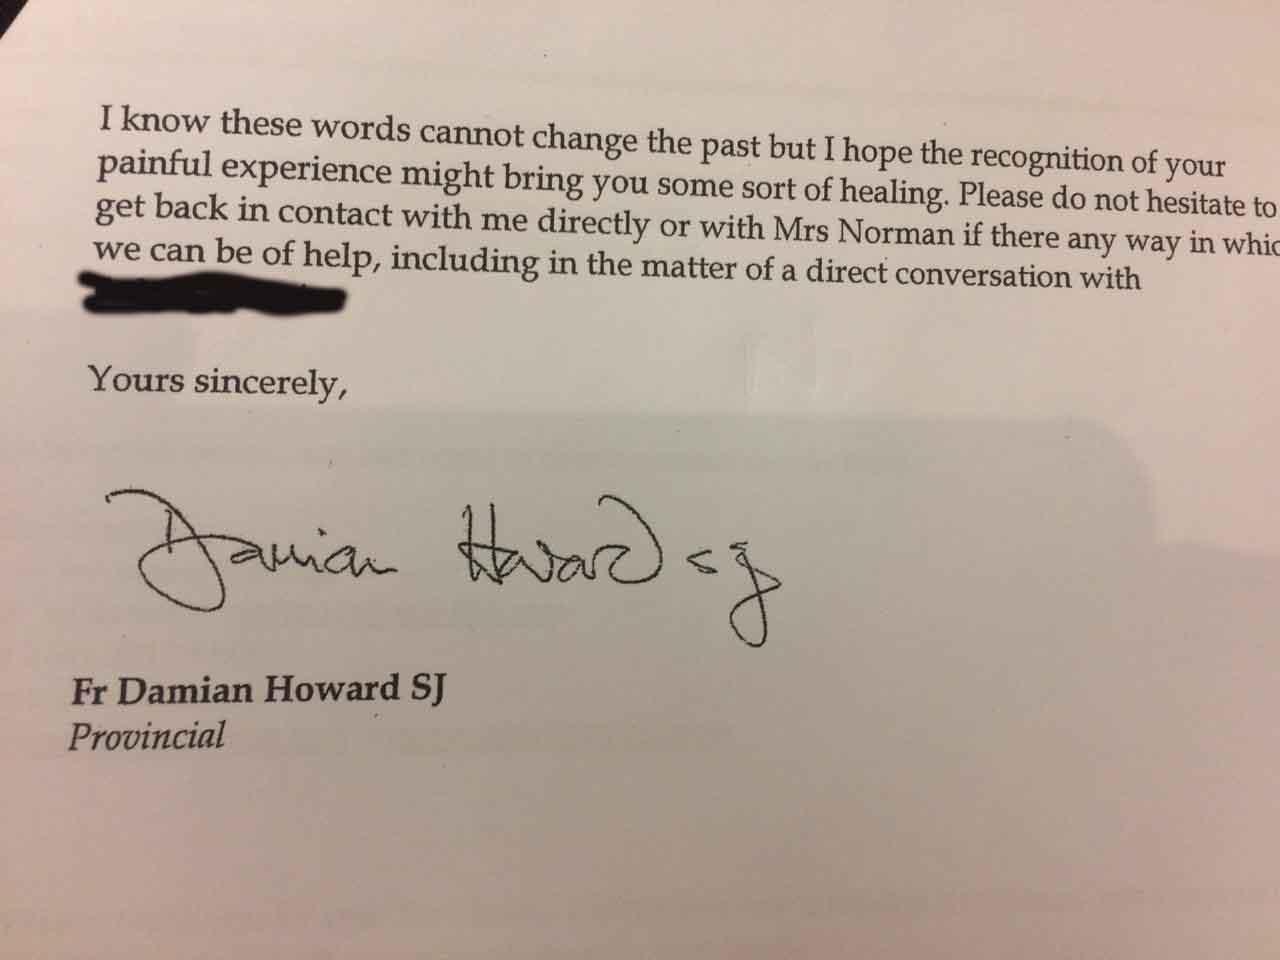 I know these words cannot change the past but I hope the recognition of your
painful experience might bring you some sort of healing. Please do not hesitate to
get back in contact with me directly or with Mrs Norman if there any way in whic
we can be of help, including in the matter of a direct conversation with
Yours sincerely,
Damian Howard sj
Fr Damian Howard SJ
Provincial